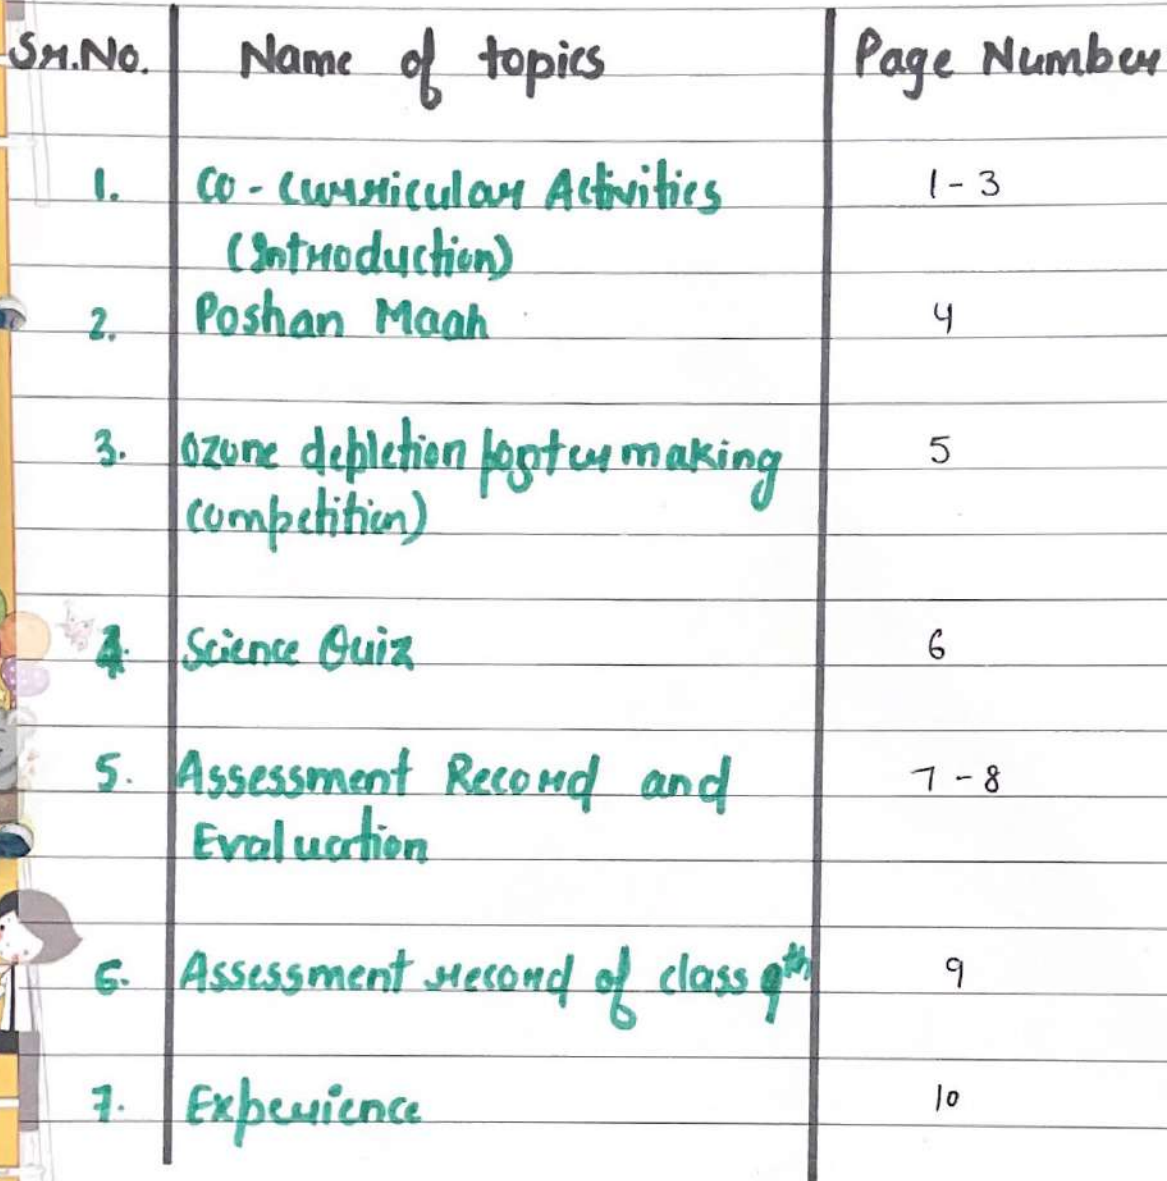 Sr.No. Name of topics Page Number
1. Co-curricular Activities 1-3
(Introduction)
2. Poshan Maah 4
3. Ozone depletion poster making 5
competition)
4. Science Quiz 6
5. Assessment Record and 7-8
Evaluation
6. Assessment record of class 9th 9
7. Experience 10